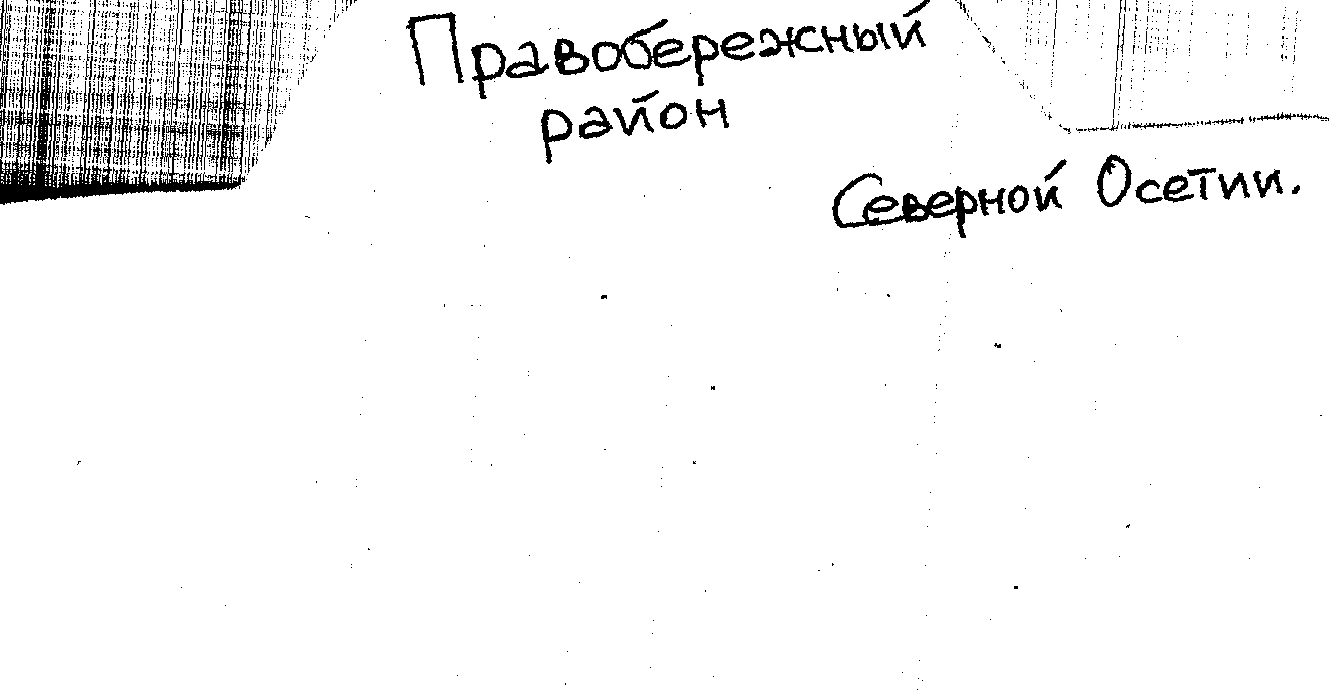 Правобережный
район
Северной Осетии.